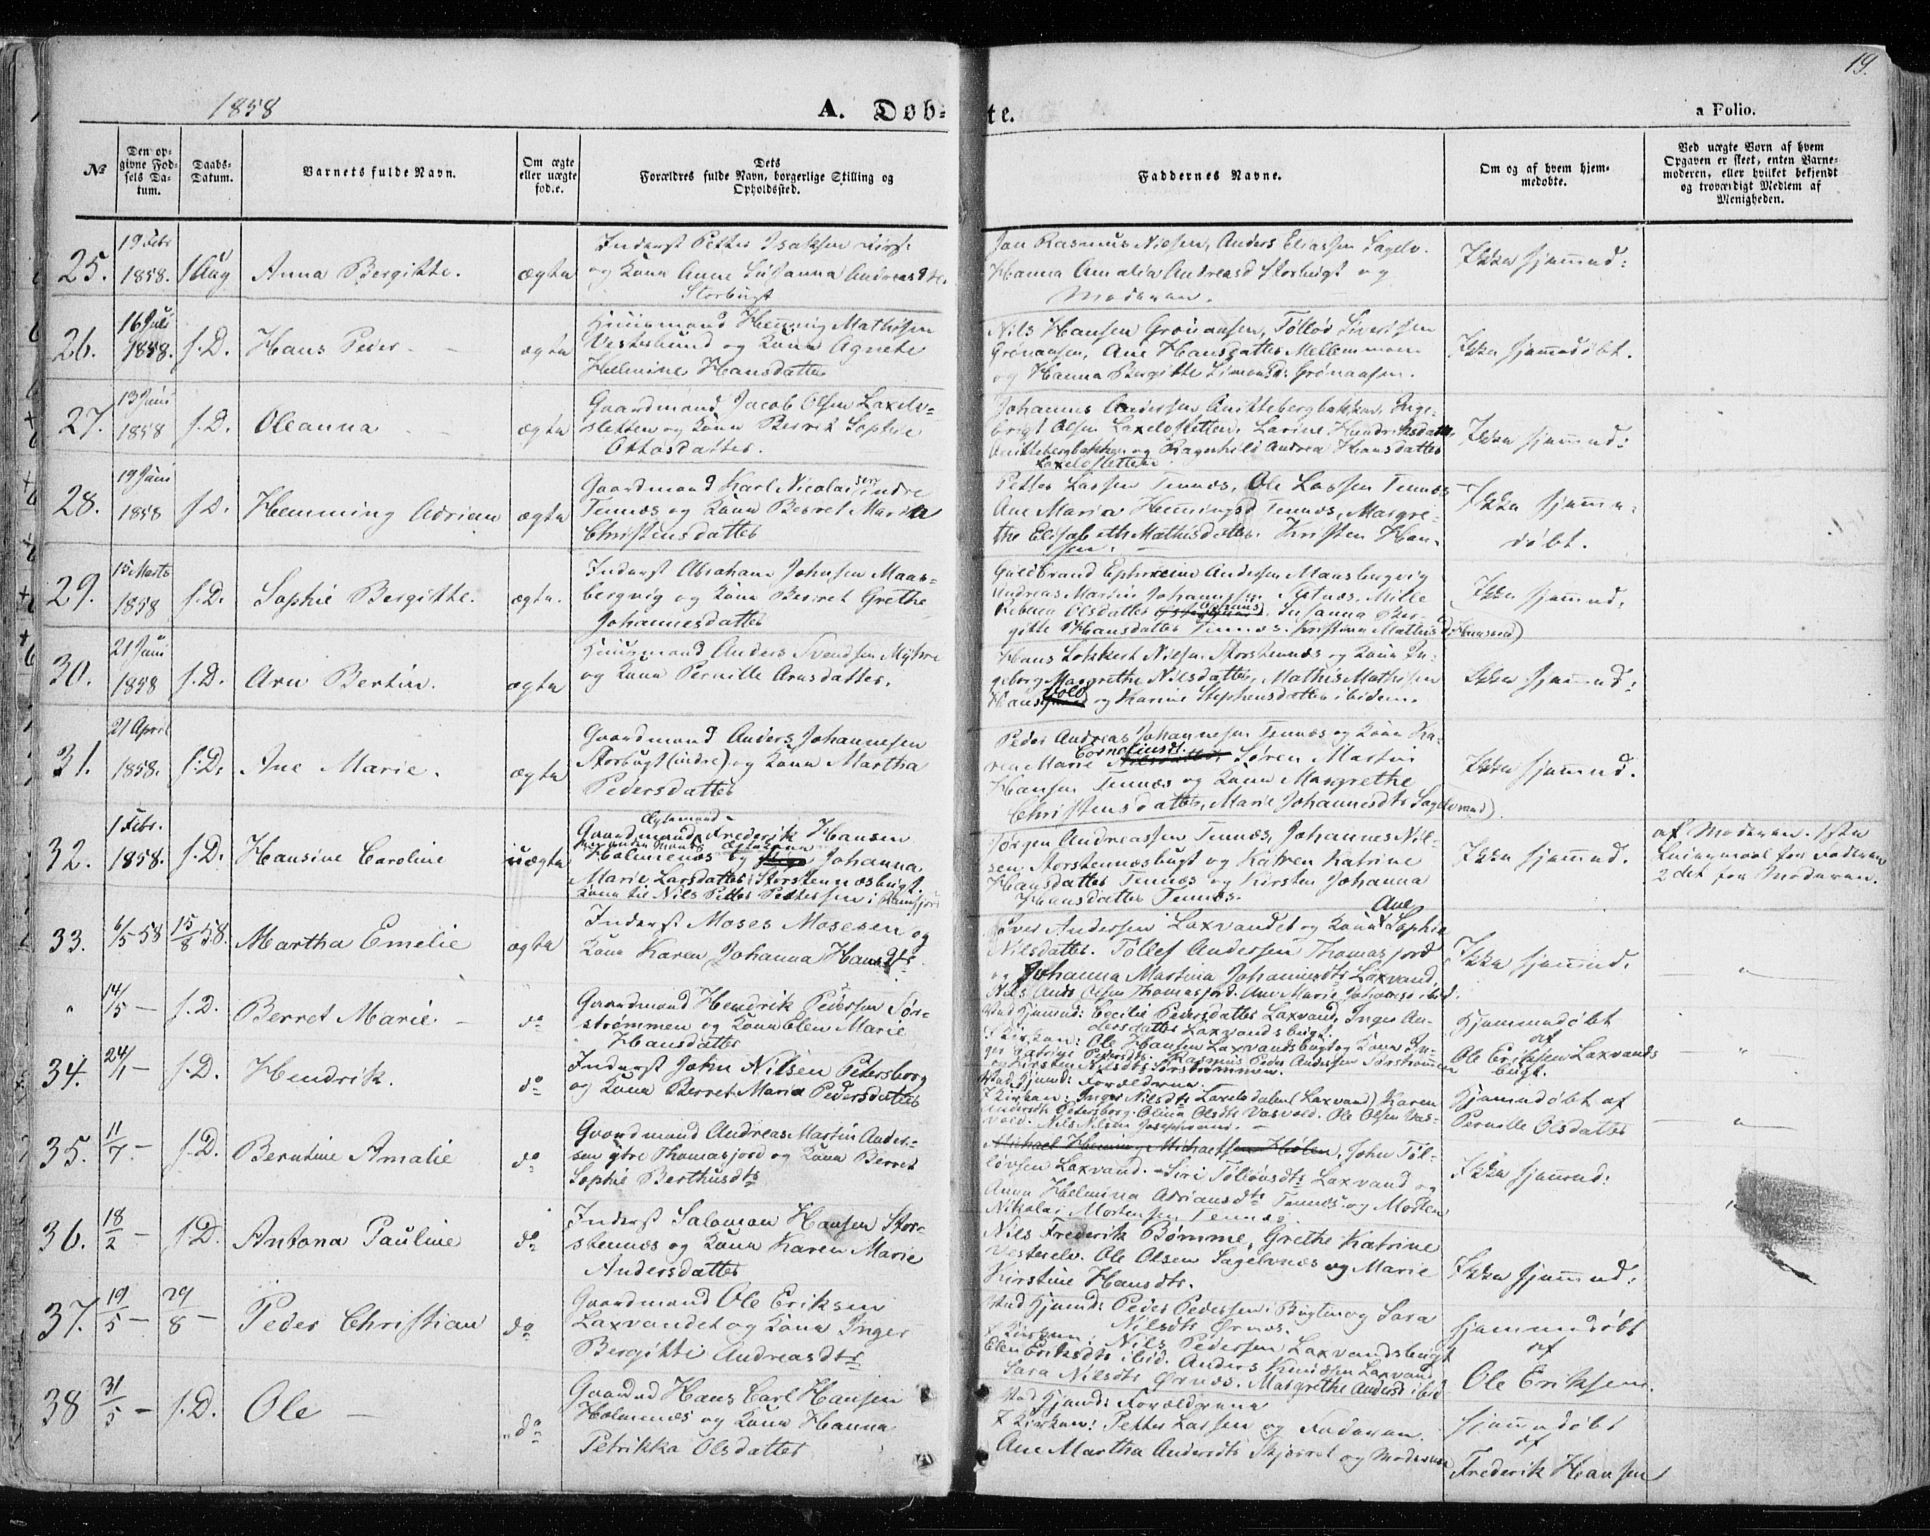 19.
1858 A. Døbte. a Folio.
No
Den opgivne Fødsels Datum.
Daabs-Datum.
Barnets fulde Navn.
Om ægte eller uægte fød.e.
Dets Forældres fulde Navn, borgerlige Stilling og Opholdssted.
Faddernes Navne.
Om og af hvem hjemmedøbte.
Ved uægte Børn af hvem Opgaven er skeet, enten Barnemoderen, eller hvilket bekjendt og troværdigt Medlem af Menigheden.
25. 19 Febr 1858. 1 Aug Anna Bergitte. ægte
Inderst Petter Isaksen
og Kone Anne Susanna Andreasd
Storbugt
Jon Rasmus Nielsen, Anders Eliassen Sagelv.
Hanna Amalia Andreasd Storbugt og
Moderen.
Ikke hjemmed:
26. 16 Juli 1858. s.D. Hans Peder ægte
Huusmand Hemmig Mathisen
Vesterlund og Kone Agnete
Helmine Hansdatter
Nils Hansen Grønaasen, Tollø Sivertsen
Grønaasen, Ane Hansdatter Mellemmoen
og Hanna Bergitte Simonsd: Grønaasen.
Ikke hjemmedøbt.
27. 13 Juni 1858 s.D. Oleanna ægte
Gaardmand Jacob Olsen Laxelv-
sletten og Kone Berret Sophie
Ottosdatter.
Johannes Andersen Anittebergbakken, Inge-
brigt Olsen Laxelvsletten, Larine Hendriksdatter
Anittebergbakken og Ragnhild Andrea Hansdatter
Laxelvsletten
Ikke hjemmed:
28. 19 Juni 1858 s.D. Hemming Adrian ægte
Gaardmand Karl Nicolaisen indre
Tennæs og Kone Berret Maria
Christensdatter
Petter Larsen Tennæs, Ole Larsen Tennæs
Ane Maria Hemmingsd Tennæs, Margre-
the Elisabeth Mathisdatter. Kristen Han-
sen.
Ikke hjemme-
døbt.
29. 15 Marts 1858 s.D. Sophie Bergitte. ægte.
Inderst Abraham Johnsen Maas-
bergvig og Kone Berret Grethe
Johannesdatter
Guldbrand Ephraim Andersen Maasbergvig
Andreas Martin Johannessen Selnæs, Mille
Rebecca Olsdatter Susanna Ber-
gitte Hansdatter Tennæs. Kristina Mathisd
Ikke hjemmed,
30. 21 Juni 1858 s.D. Arn Bertin. ægte
Huusmand Anders Svendsen Myhre
og Kone Pernille Arnsdatter.
Hans Lokkert Nielsen Storstennæs og Kone In-
geborg Margrethe Nilsdatter, Mathis Mathisen
og Karine Stephensdatter ibidem.
Ikke hjemmed:
31. 21 April 1858. s.D. Ane Marie. ægte
Gaardmand Anders Johannesen
Storbugt (indre) og Kone Martha
Pedersdatter
Peder Andreas Johannesen Tennæs og Kone Ka-
ren Marie Corneliusdt. Søren Martin
Hansen Tennæs og Kone Margrethe
Christensdatter, Marie Johannesdtr Sagelvvand).
Ikke hjemmed.
32. 1 Febr. 1858. s.D. Hansine Caroline uægte
Ægtemand
Gaardmand Frederik Hansen
Holmenæs og Johanna
Marie Larsdatter Storstennæsbugt.
Kone til Nils Petter Pettersen i
Jørgen Andreassen Tennæs, Johannes Nil-
sen, Storstennæsbugt og Katren Katrine
Hansdatter Tennæs og Kirsten Johanna
Hansdatter Tennæs.
Ikke hjemmed.
af Moderen. 1ste
Leiermaal for Faderen
2det for Moderen.
33. 6/5 58 15/8 58. Martha Emelie ægte
Inderst Moses Mosesen og
Kone Karen Johanna Hansdtr
Iver Andersen Laxvandet og Kone Ane Sophie
Nilsdatter. Tollef Andersen Thomasjord
og Johanna Martina Johannesdtr Laxvand,
Nils Ands Olsen Thomasjord. Ane Marie Johannesd ibid.
Ikke hjemmed.
" 14/5 – s.D. Berret Marie. do
Gaardmand Hendrik Pedersen Sør-
strømmen og Kone Elen Marie
Hansdatter
Ved Hjemmed: Cecilie Pedersdatter Laxvand, Inger An-
dersdatter Laxvandsbugt.
I Kirken: Ole Hansen Laxvandsbugt og Kone In-
ger Katrine Pedersdt. Rasmus Peder Andersen Sørstrømmen
og Kirsten Nilsdtr Sørstrømmen.
Hjemmedøbt
af
Ole Eriksen Laxvands
bugt.
34. 24/1 – s.D. Hendrik. do
Inderst John Nilsen Petersborg
og Kone Berret Maria Pedersdatter
Ved Hjemmed: Forældrene.
I Kirken: Inger Nilsdtr Laxelvdalen (Laxvand) Karen
Andersdtr Petersborg. Olina Olsdtr Vasvold. Ole Olsen Vas-
vold. Nils Nilsen
Hjemmedøbt af
Pernille Olsdatter
35. 11/7 – s.D. Berntine Amalie do
Gaardmand Andreas Martin Ander-
sen ytre Thomasjord og Kone Berret
Sophie Berthusdtr
Michael Hemming Michaelsen Holen, John Tøl-
løvsen Laxvand. Siri Tølløvsdtr Laxvand og
Anna Helmina Adriansdtr Tennæs og Morten
Nikolai Mortensen Tennæs.
Ikke hjemmed:
36. 18/2 – s.D. Antona Pauline do
Inderst Salomon Hansen Stor-
stennæs og Kone Karen Marie
Andersdatter
Nils Frederik Bømme, Grethe Katrine
Vesterelv. Ole Olsen Sagelvnæs og Marie
Kirstine Hansdtr.
Ikke hjemmed:
37. 19/5 – 29/8 – Peder Christian do
Gaardmand Ole Eriksen
Laxvandet og Kone Inger
Bergitte Andreasdtr
Ved Hjemmed: Peder Pedersen i Bugten og Sara
Nilsdtr Ørnæs.
I Kirken: Nils Pedersen Laxvandsbugt
Elen Eriksdtr ibid. Anders Knudsen Laxvand
Sara Nilsdtr Ørnæs. Margrethe Andersd ibid
Hjemmedøbt
af
Ole Eriksen.
38 31/5 – s.D. Ole – do
Gaardmd Hans Carl Hansen
Holmenæs og Kone Hanna
Petrikka Olsdatter
Ved Hjemmed: Forældrene
I Kirken: Petter Larsen og Faderen.
Ane Martha Andersdtr Skjævel og Moderen
Hjemmedøbt
af
Frederik Hansen